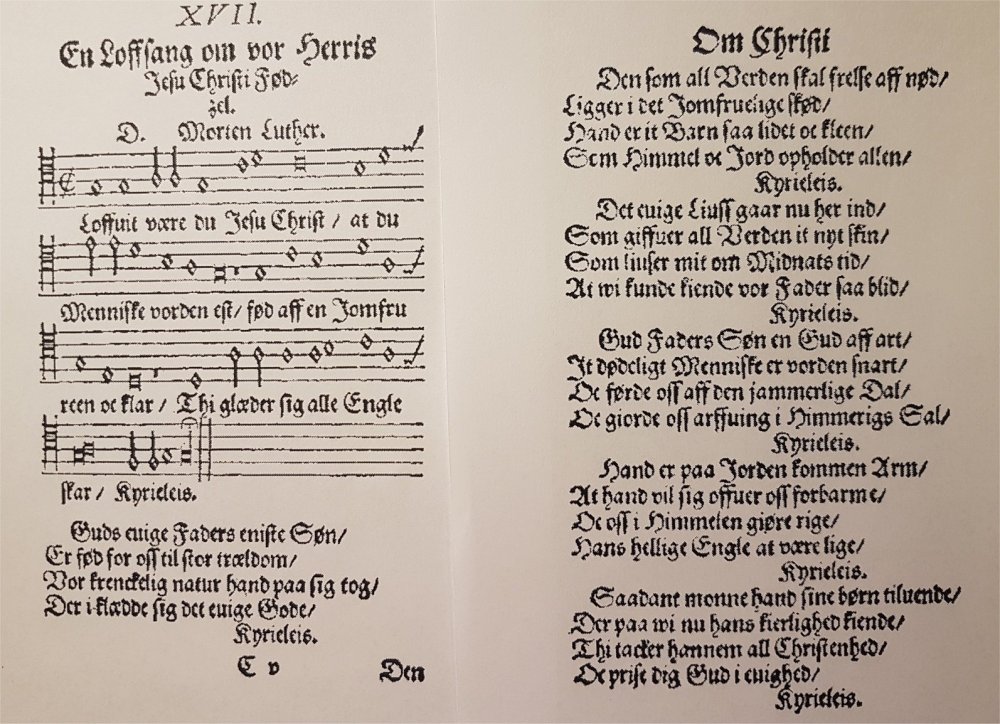 XVII.
En Loffsang om vor Herris
Jesu Christi Fød-
zel.
D. Morten Luther.
Loffuit være du Jesu Christ / at du
Menniske vorden est / fød aff en Jomfru
reen oc klar / Thi glæder sig alle Engle
skar / Kyrieleis.
Guds euige Faders eniste Søn /
Er fød for oss til stor trældom /
Vor krenckelig natur hand paa sig tog /
Der i klædde sig det euige Gode /
Kyrieleis.
C v
Den
Om Christi
Den som all Verden skal frelse aff nød /
Ligger i det Jomfruelige skød /
Hand er it Barn saa lidet oc kleen /
Som Himmel oc Jord opholder allen /
Kyrieleis.
Det euige Liuss gaar nu her ind /
Som giffuer all Verden it nyt skin /
Som liuser mit om Midnats tid /
At wi kunde kiende vor Fader saa blid /
Kyrieleis.
Gud Faders Søn en Gud aff art /
It dødeligt Menniske er vorden snart /
Oc førde oss aff den jammerlige Dal /
Oc giorde oss arffuing i Himmerigs Sal /
Kyrieleis.
Hand er paa Jorden kommen Arm /
At hand vil sig offuer oss forbarme /
Oc oss i Himmelen giøre rige /
Hans hellige Engle at være lige /
Kyrieleis.
Saadant monne hand sine børn tiluende /
Der paa wi nu hans kierlighed kiende /
Thi tacker hannem all Christenhed /
Oc prise dig Gud i euighed /
Kyrieleis.